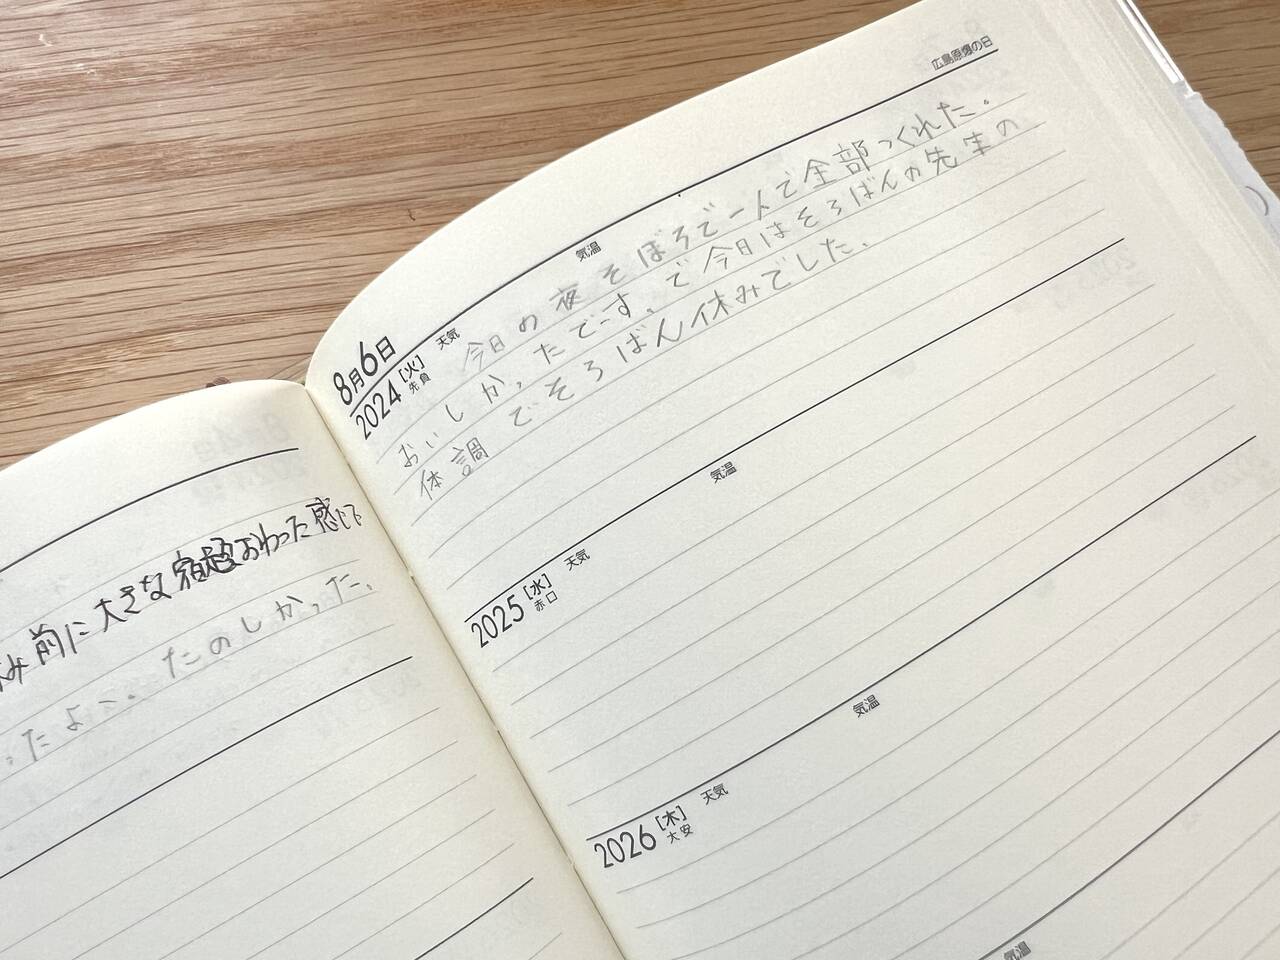 み前に大きな宿題おわった感じで
たよ〜。たのしかった。
広島原爆の日
8月6日
2024 [火] 先負
天気
気温
今日の夜そぼろで一人で全部つくれた。
おいしかったでーす。で今日はそろばんの先生の
体調でそろばん休みでした。
2025 [水] 赤口
天気
気温
2026 [木] 大安
天気
気温
気温